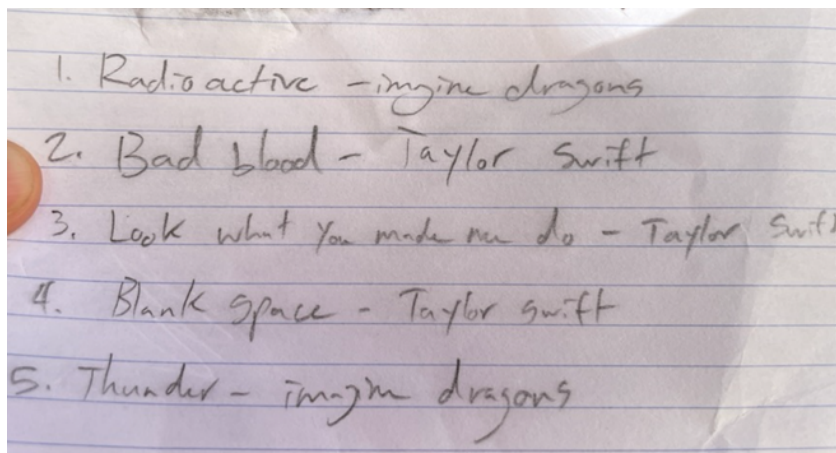 1. Radioactive - imgine dragons
2. Bad blood - Taylor Swift
3. Look what You made me do - Taylor Swift
4. Blank space - Taylor swift
5. Thunder - imagine dragons